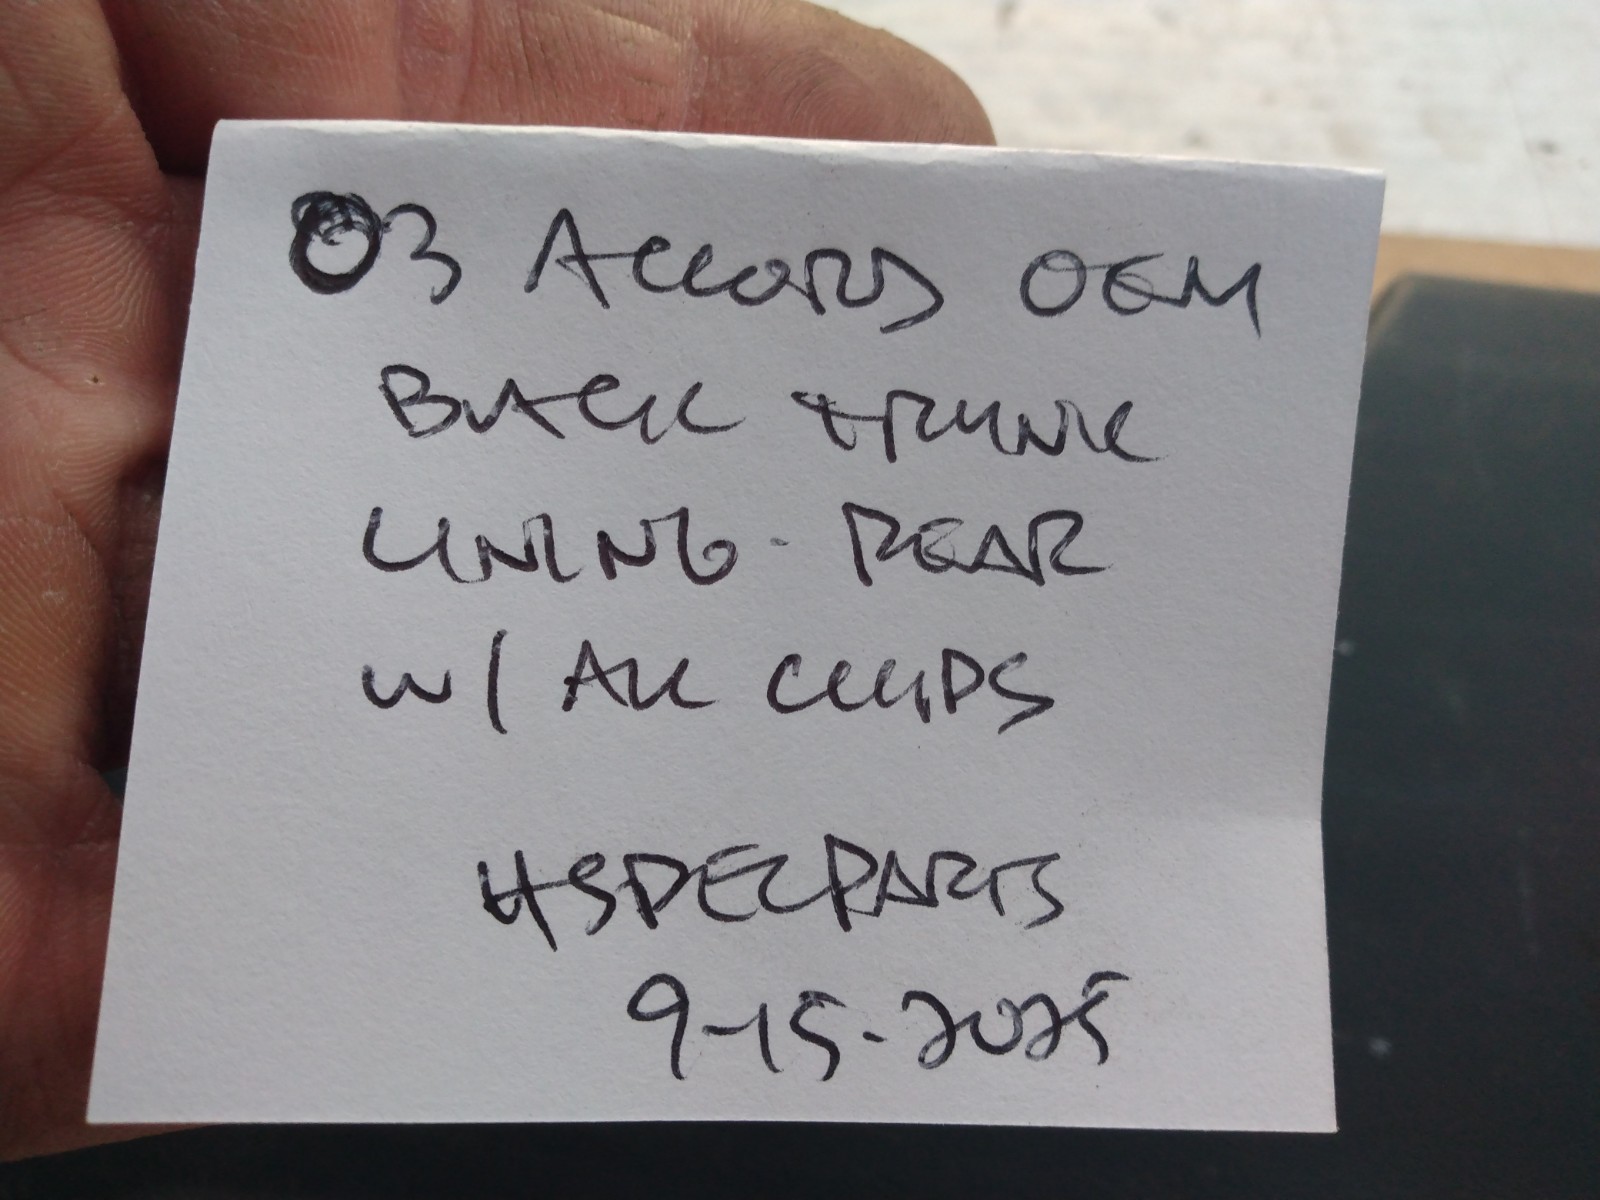 03 ACCORD OEM
BLACK TRUNK
LINING - REAR
W/ ALL CLIPS
HSPECPARTS
9-15-2025